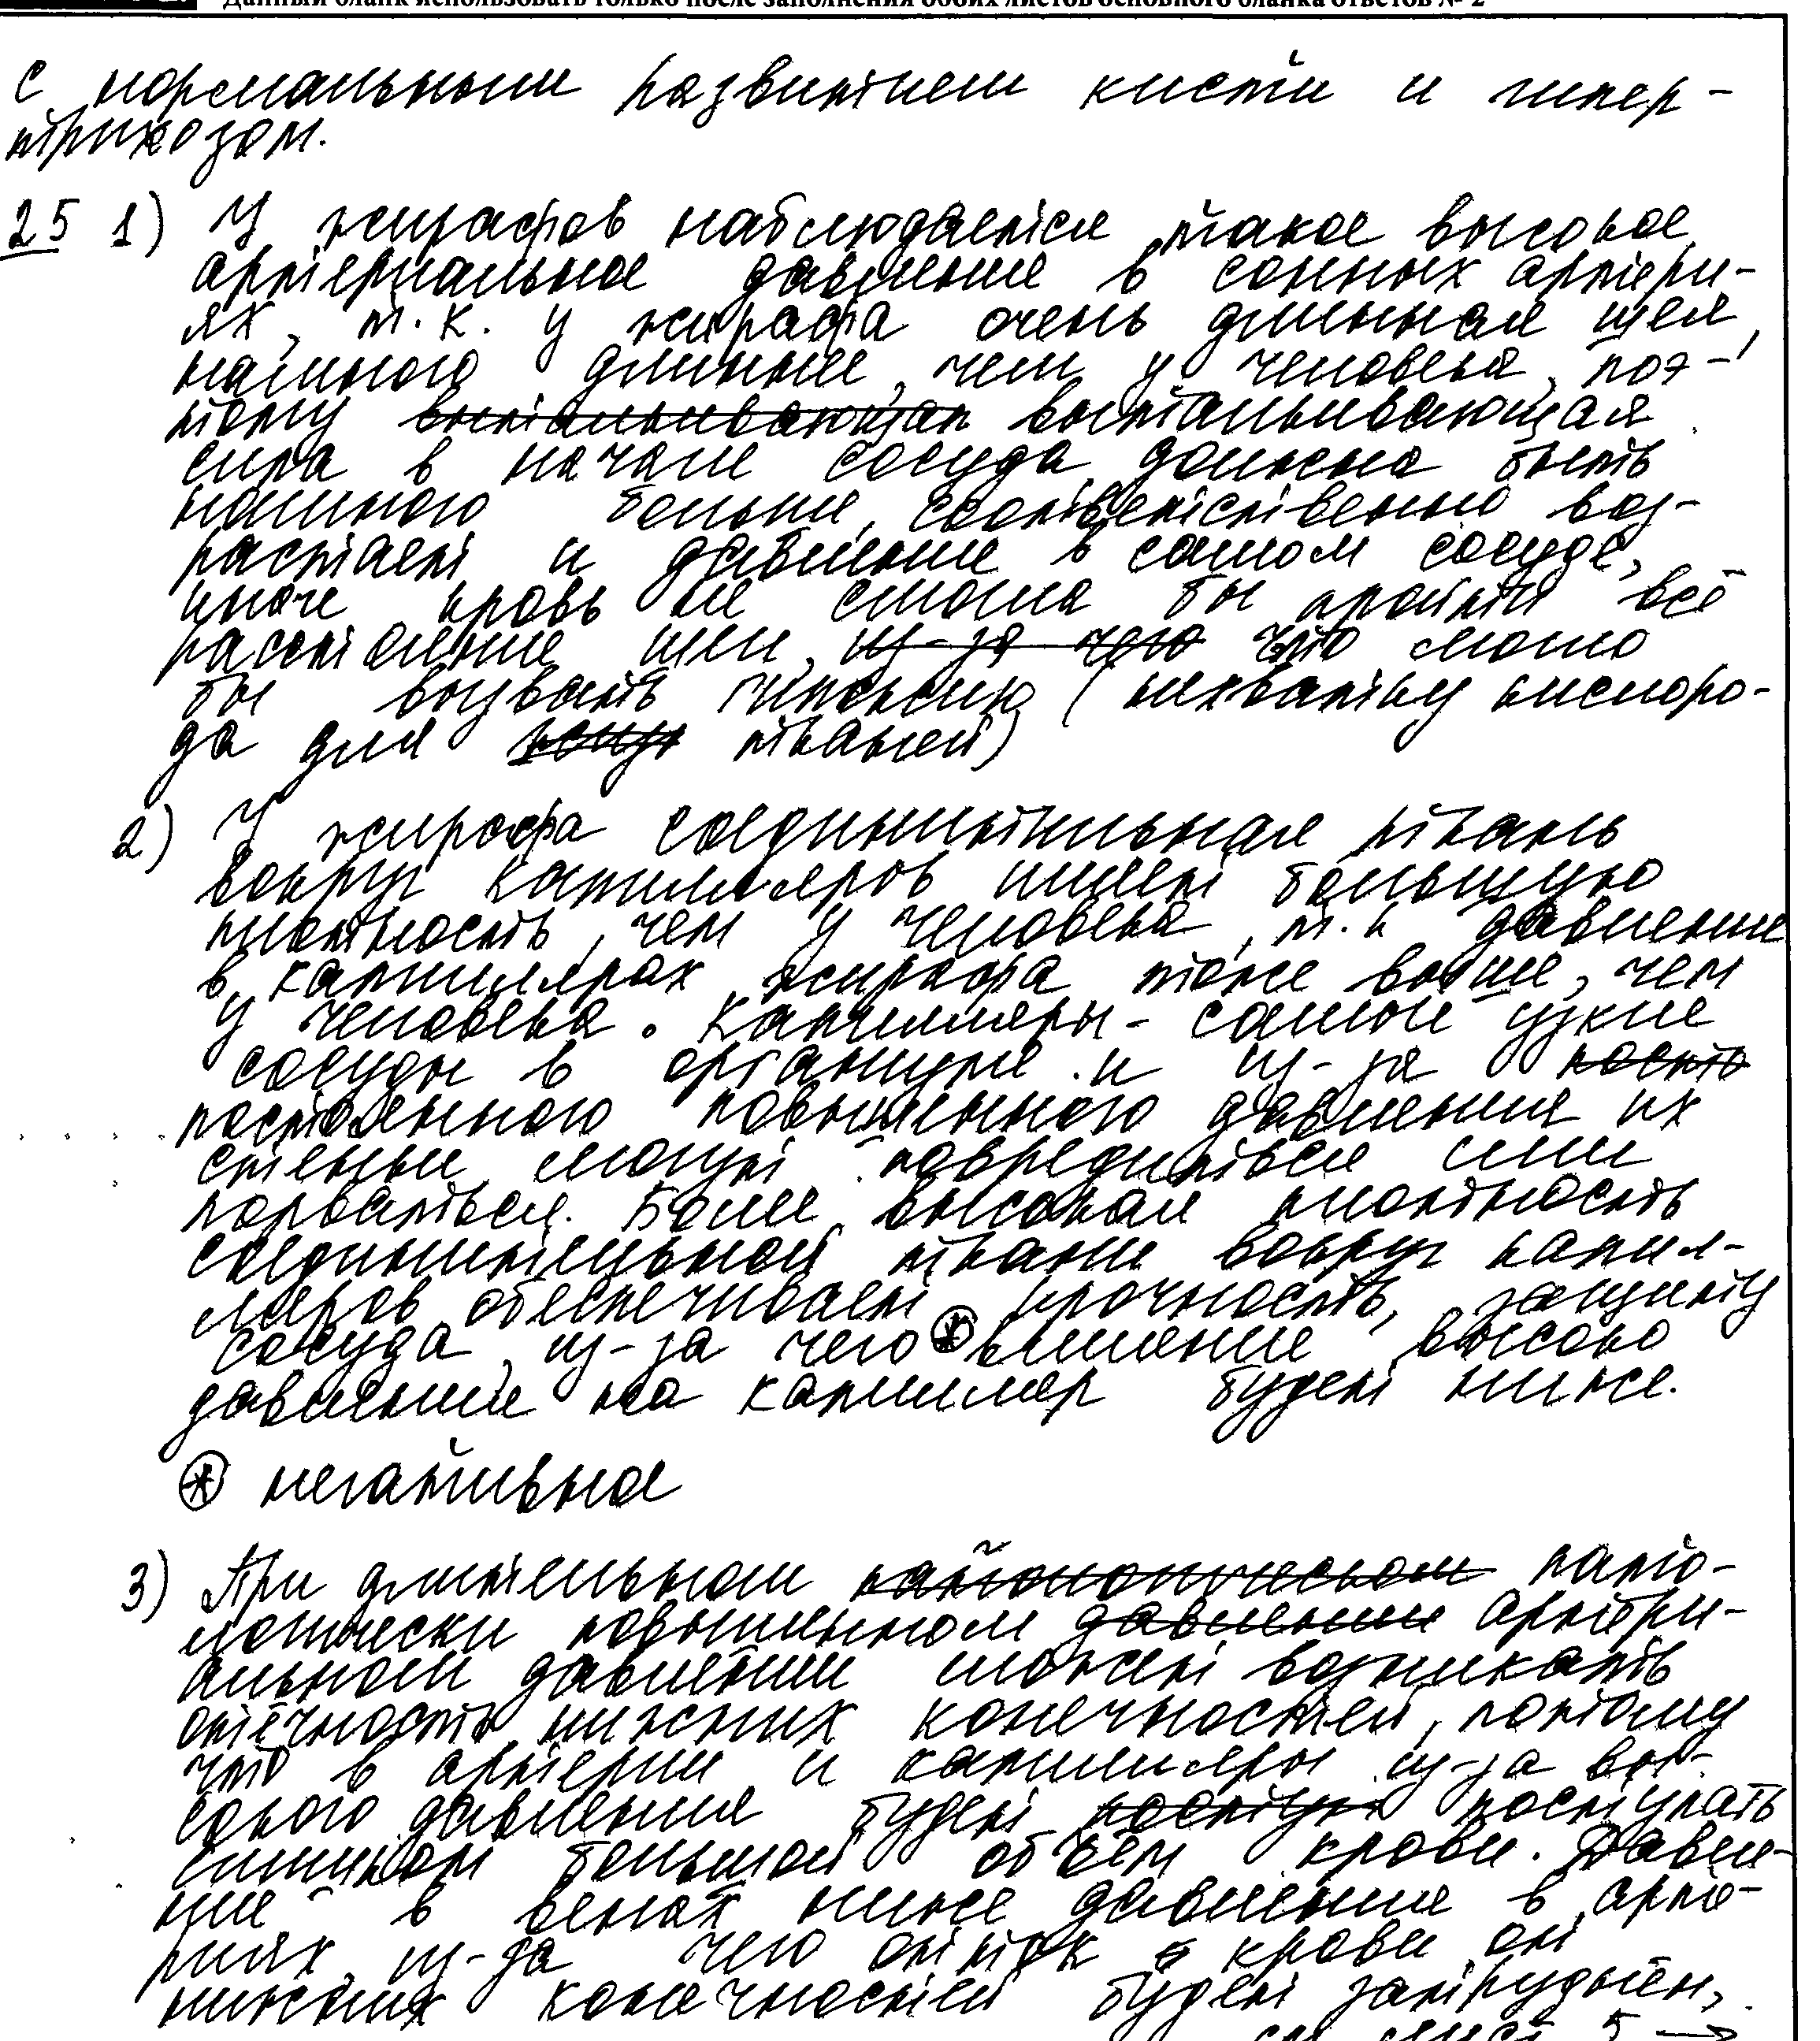 Данный бланк использовать только после заполнения обоих листов основного бланка ответов № 2
с нормальным развитием кисти и гипер-
трихозом.
25 1) У жирафов наблюдается такое высокое
артериальное давление в сонных артери-
ях, т.к. у жирафа очень длинная шея,
намного длиннее, чем у человека, поэ-
тому выталкивающая выталкивающая
сила в начале сосуда должна быть
намного больше, соответственно воз-
растает и давление в самом сосуде,
иначе кровь не смогла бы пройти всё
расстояние шеи, из-за чего что могло
бы вызвать гипоксию (нехватку кислоро-
да для тканей)
2) У жирафа соединительная ткань
вокруг капилляров имеет большую
плотность, чем у человека, т.к давление
в капиллярах жирафа тоже выше, чем
у человека. Капилляры - самые узкие
сосуды в организме и из-за постo
постоянного повышенного давления их
стенки могут повредиться или
порваться. Более высокая плотность
соединительной ткани вокруг капил-
ляров обеспечивает прочность, защиту
сосуда, из-за чего * влияние высоко
давления на капилляр будет ниже.
* негативное
3) При длительном патологическом пато-
логически повышенном давлении артери-
альном давлении может возникать
отёчность нижних конечностей, потому
что в артерии и капилляры из-за вы-
сокого давления будет поступ поступать
слишком большой объём крови. Давле-
ние в венах ниже давления в арте-
риях, из-за чего отток крови от
нижних конечностей будет затруднён,
см лист 5 →